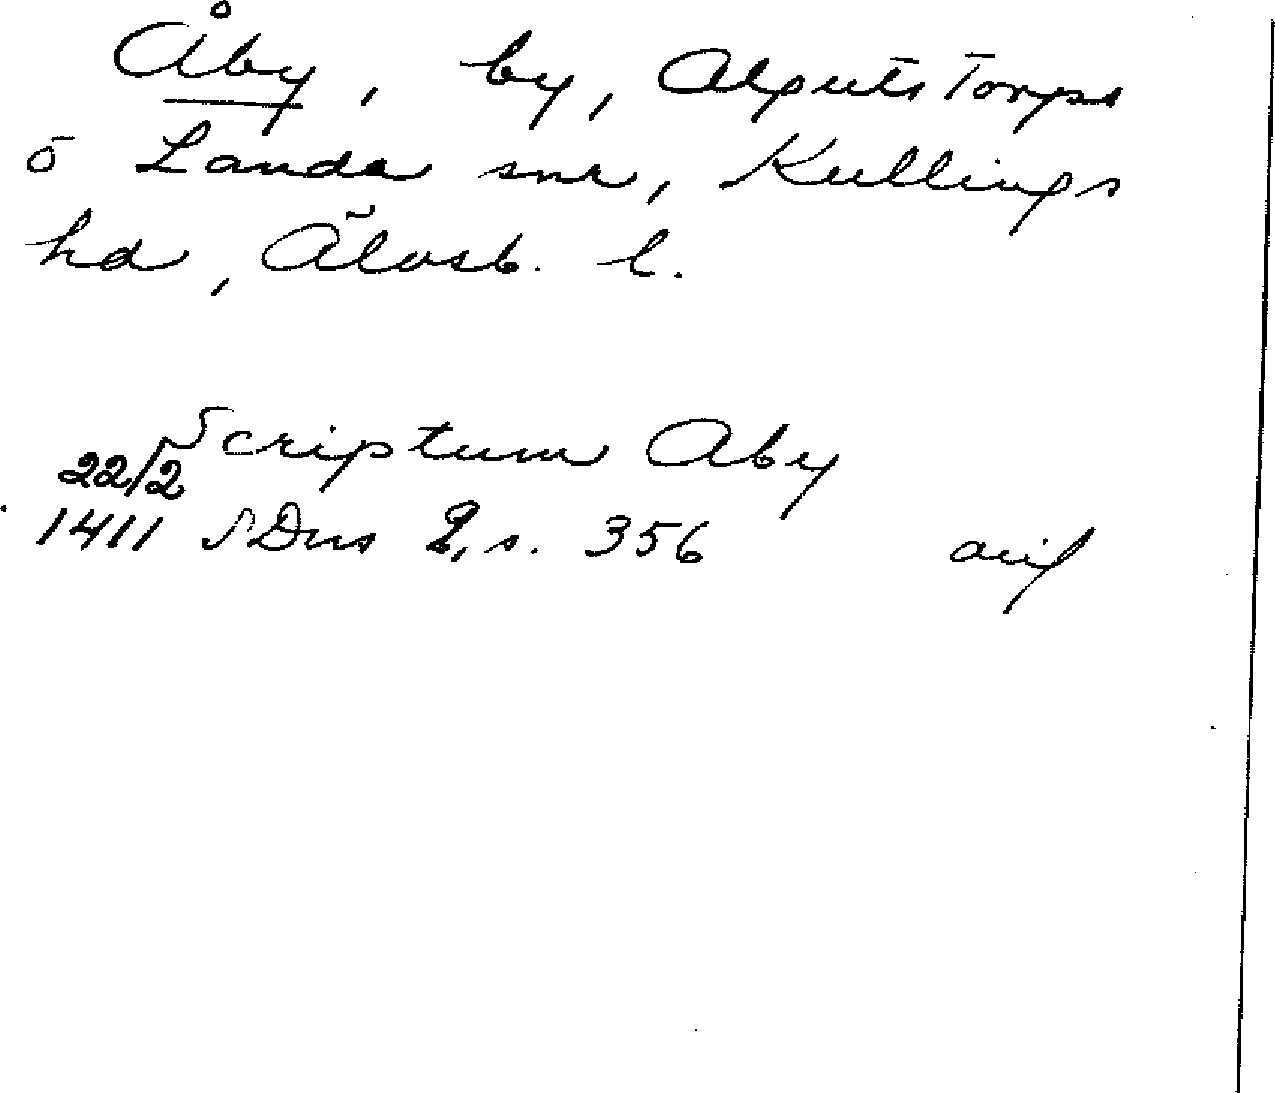 Åby, by, Algutstorps
o Landa snr, Kullings
hd, Älvsb. l.
Scriptum Aby
22/2
1411 SDns 2, s. 356 avs